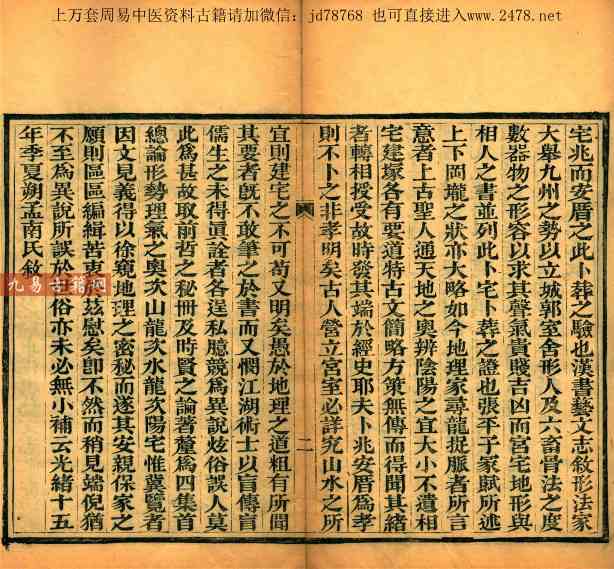 上万套周易中医资料古籍请加微信：jd78768 也可直接进入www.2478.net
宅兆而安厝之此卜葬之驗也漢書藝文志敘形法家
大舉九州之勢以立城郭室舍形人及六畜骨法之度
數器物之形容以求其聲氣貴賤吉凶而宮宅地形與
相人之書並列此卜宅卜葬之證也張平子家賦所述
上下岡壠之狀亦大略如今地理家尋龍捉脈者所言
意者上古聖人通天地之奧辨陰陽之宜大小不遺相
宅建塚各有要道特古文簡略方策無傳而得聞其緒
者轉相授受故時發其端於經史耶夫卜兆安厝爲孝
則不卜之非孝明矣古人營立宮室必詳究山水之所
二
宜則建宅之不可苟又明矣愚於地理之道粗有所聞
其要者旣不敢筆之於書而又憫江湖術士以盲傳盲
儒生之未得眞詮者各逞私臆競爲異說炫俗誤人莫
此爲甚故取前哲之秘冊及時賢之論著釐爲四集首
總論形勢理氣之奧次山龍次水龍次陽宅惟冀覽者
因文見義得以徐窺地理之密秘而遂其安親保家之
願則區區編緝苦衷茲慰矣卽不然而稍見端倪猶
不至爲異說所誤於俗亦未必無小補云光緒十五
年季夏朔孟南氏敘
九易古籍网